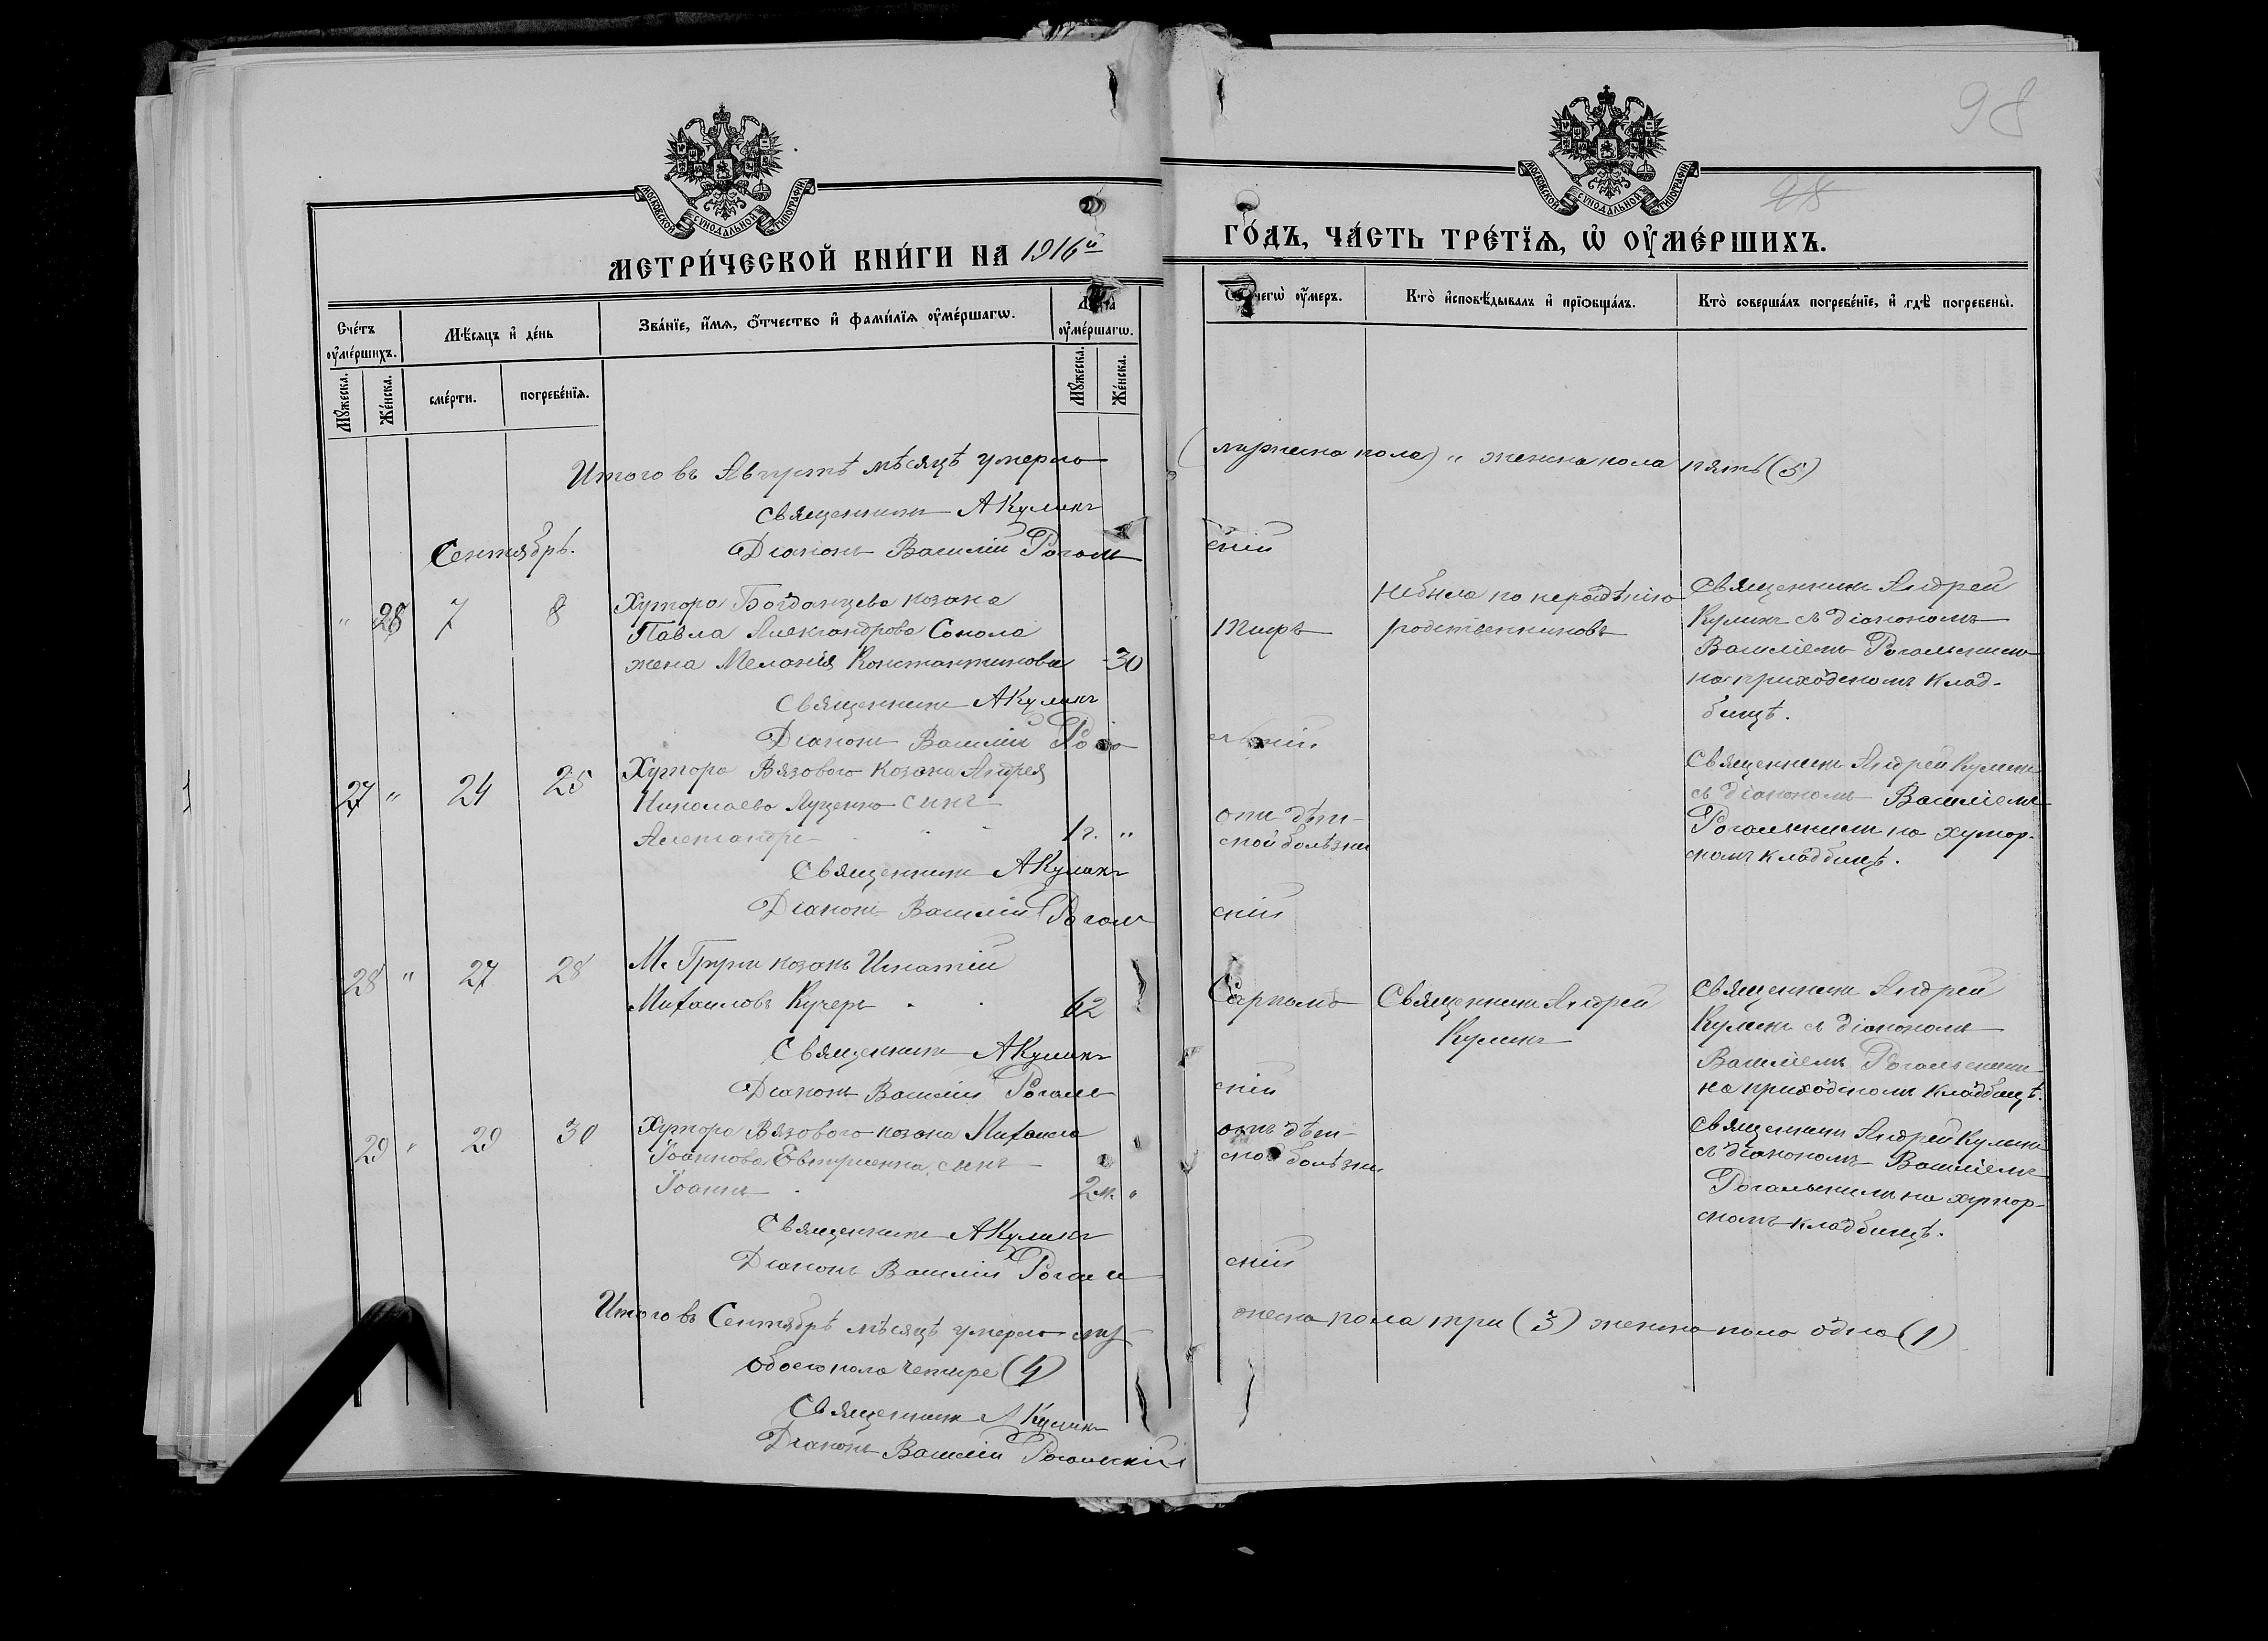 98
28
МОСКОВСКОЙ СѴНОДАЛЬНОЙ ТИПОГРАФІИ
МОСКОВСКОЙ СѴНОДАЛЬНОЙ ТИПОГРАФІИ
МЕТРИ́ЧЕСКОЙ КНИ́ГИ НА 1916й
ГО́ДЪ, ЧА́СТЬ ТРЕ́ТЇѦ, Ѡ ОУМЕ́РШИХЪ.
Сче́тъ оуме́ршихъ.
Мꙋжеска.
Же́нска.
Мѣ́сѧцъ и де́нь
сме́рти.
погребе́нїѧ.
Зва́нїе, и́мѧ, ѻ́тчество и фами́лїѧ оуме́ршагѡ.
Лѣта оуме́ршагѡ.
Мꙋжеска.
Же́нска.
чегѡ̀ оу́меръ.
Кто̀ и҆сповѣ́дывалъ и҆ прїѡбща́лъ.
Кто̀ соверша́лъ погребе́нїе, и҆ гдѣ̀ погребены̀.
Итого въ Августѣ мѣсяцѣ умерло (мужеска пола) " женска пола пять (5)
Священникъ А Куликъ
Діаконъ Василій Рогальскій
Сентябрь.
" 28 7 8
Хутора Богданцева козака
Павла Александрова Сокола
жена Меланія Константинова 30
Тифъ
Небыла по нерадѣнію
родственниковъ
Священникъ Андрей
Куликъ съ діакономъ
Василіемъ Рогальскимъ
на приходскомъ клад-
бищѣ.
Священникъ А Куликъ
Діаконъ Василій Рогальскій
27 " 24 25
Хутора Вязового козака Андрея
Николаева Луценко сынъ
Александръ 1 г. "
отъ дѣт-
ской болѣзни
Священникъ Андрей Куликъ
съ діакономъ Василіемъ
Рогальскимъ на хутор-
скомъ кладбищѣ.
Священникъ А Куликъ
Діаконъ Василій Рогальскій
28 " 27 28
М. Груни козакъ Игнатій
Михаиловъ Кучеръ 62
Священникъ Андрей
Куликъ
Священникъ Андрей
Куликъ съ діакономъ
Василіемъ Рогальскимъ
на приходскомъ кладбищѣ.
Священникъ А Куликъ
Діаконъ Василій Рогальскій
29 " 29 30
Хутора Вязового козака Михаила
Іоаннова Евтушенка сынъ
Іоаннъ 2 м. "
отъ дѣт-
ской болѣзни
Священникъ Андрей Куликъ
съ діакономъ Василіемъ
Рогальскимъ на хутор-
скомъ кладбищѣ.
Священникъ А Куликъ
Діаконъ Василій Рогальскій
Итого въ Сентябрѣ мѣсяцѣ умерло мужеска пола три (3) женска пола одна (1)
обоего пола четыре (4)
Священникъ А Куликъ
Діаконъ Василій Рогальскій